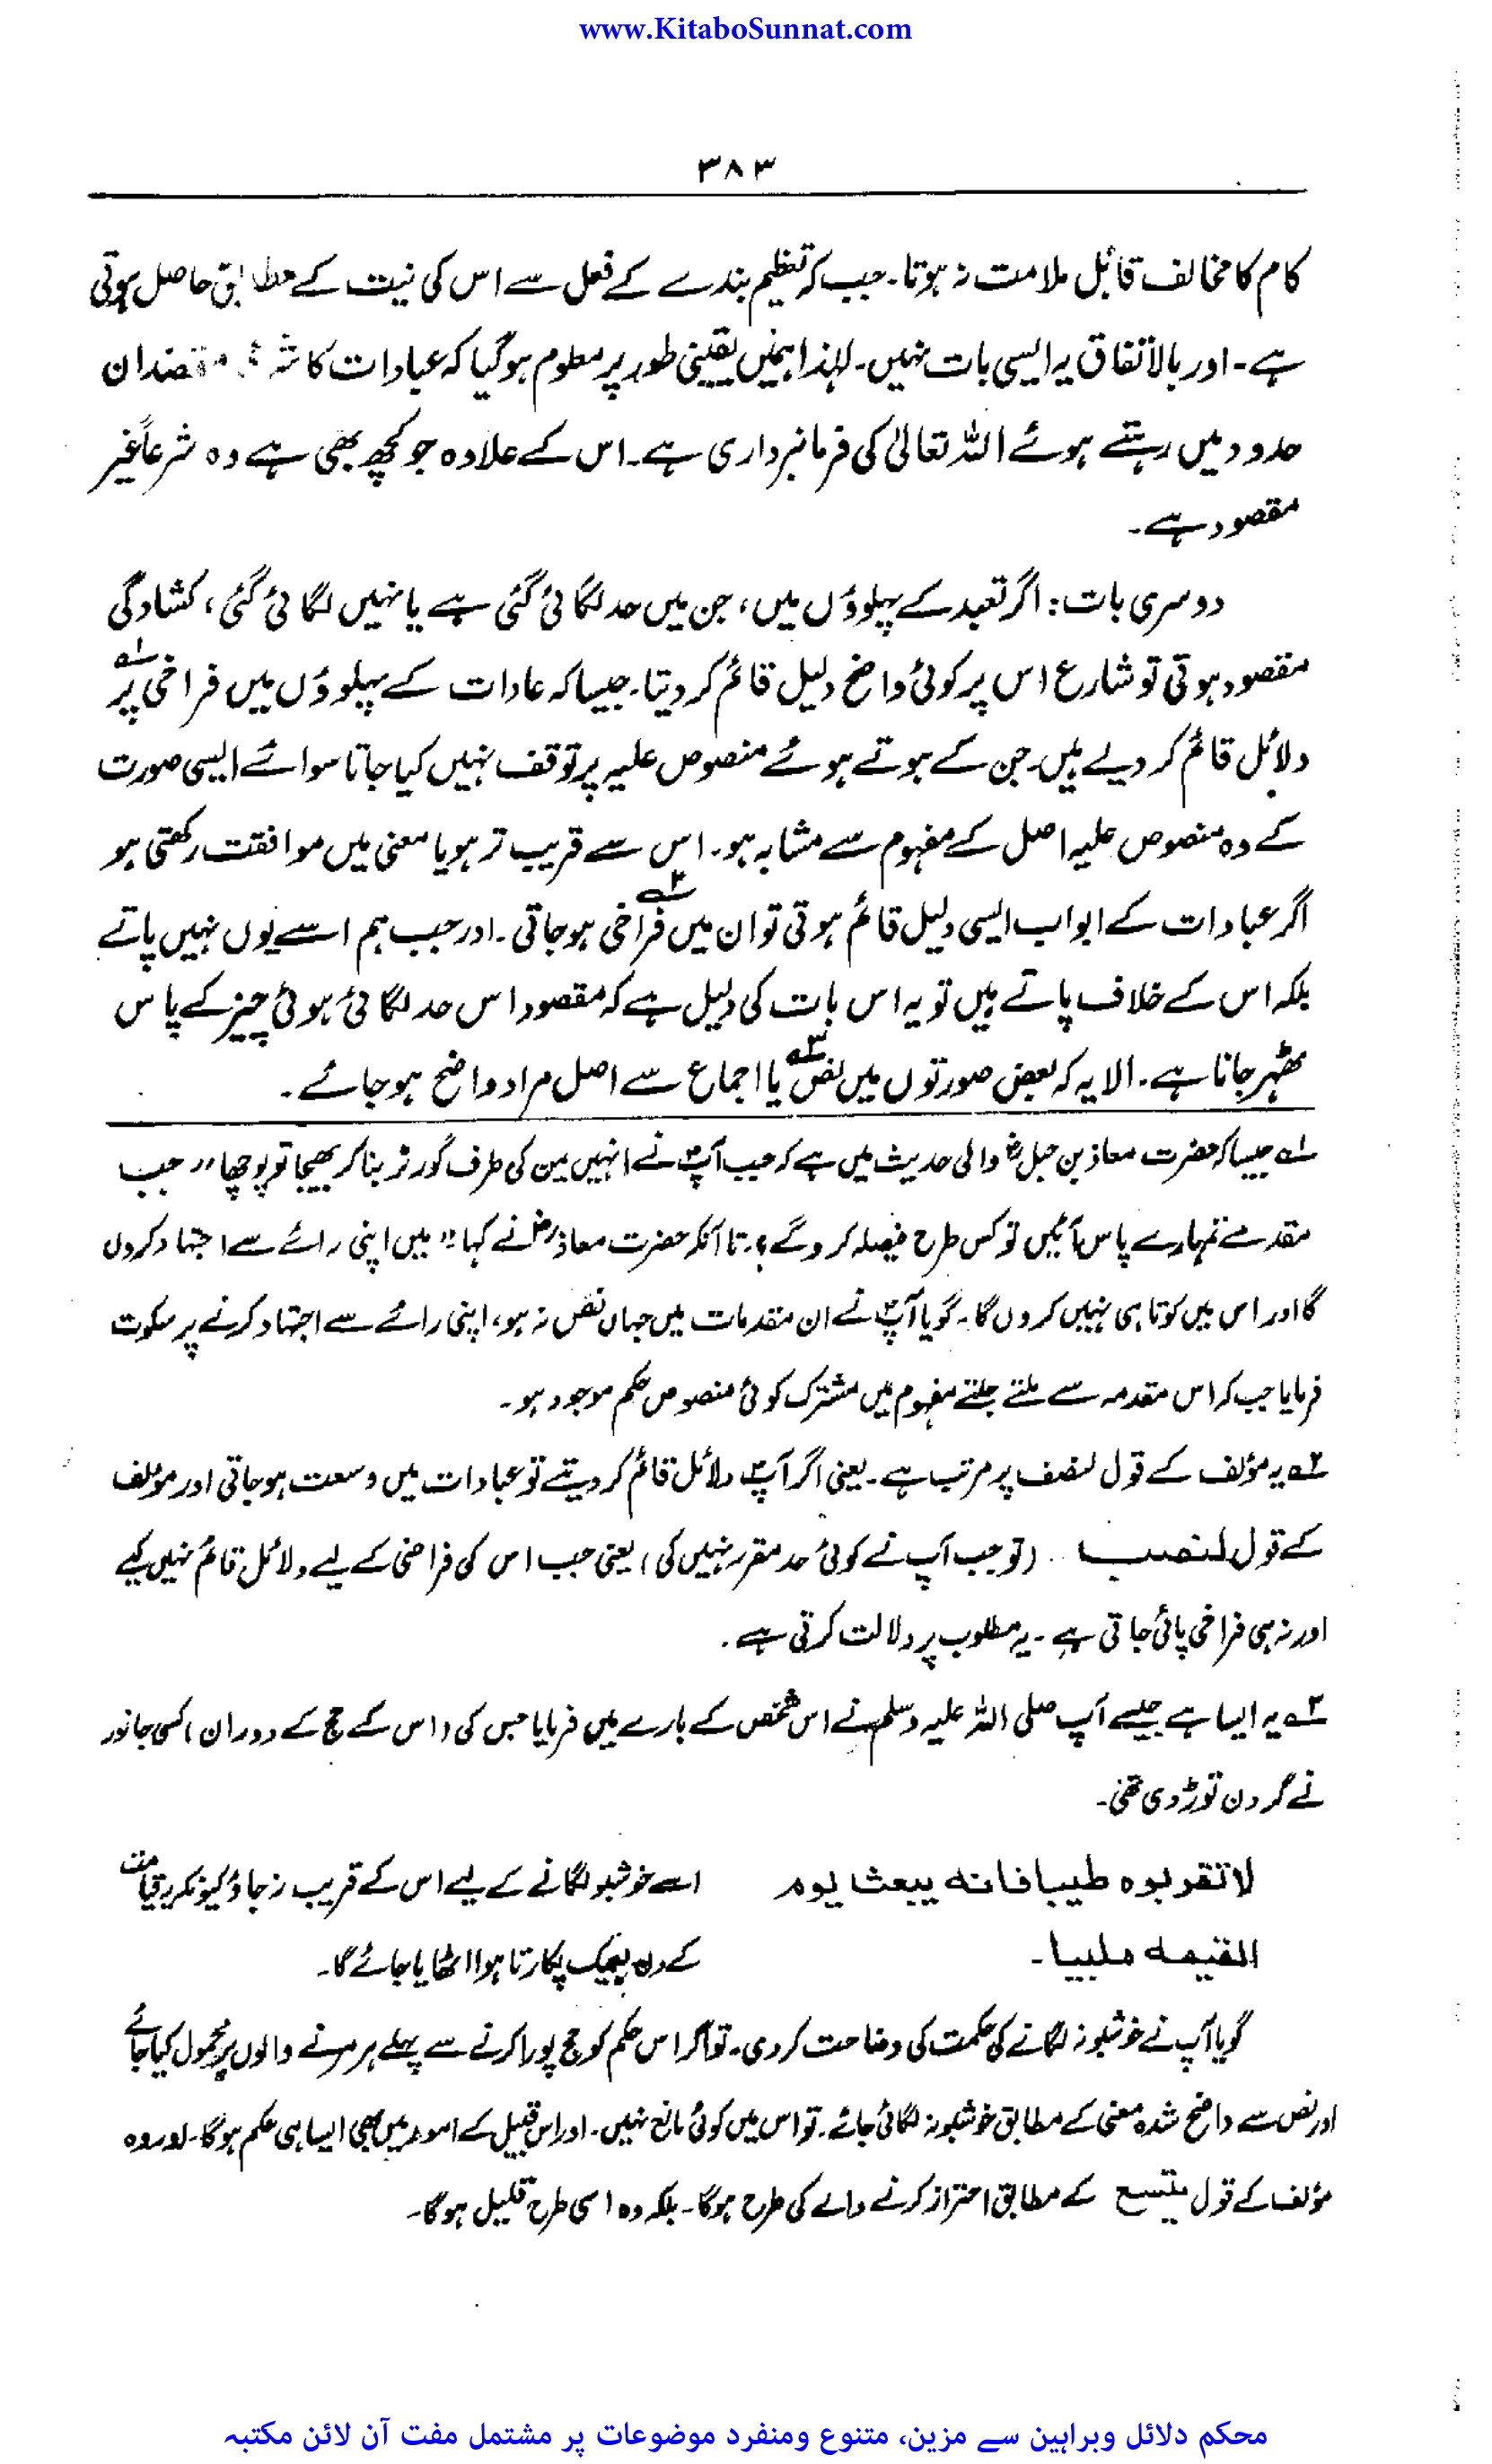 www.KitaboSunnat.com
۳۸۳
کام کا مخالف قابل ملامت نہ ہوتا۔ جب کہ تعظیم بندے کے فعل سے اس کی نیت کے مطابق حاصل ہوتی
ہے۔ اور بالاتفاق یہ ایسی بات نہیں۔ لہٰذا ہمیں یقینی طور پر معلوم ہوگیا کہ عبادات کا مقصد ان
حدود میں رہتے ہوئے اللہ تعالیٰ کی فرمانبرداری ہے۔ اس کے علاوہ جو کچھ بھی ہے وہ شرعاً غیر
مقصود ہے۔
دوسری بات: اگر تعبد کے پہلوؤں میں، جن میں حد لگائی گئی ہے یا نہیں لگائی گئی، کشادگی
مقصود ہوتی تو شارع اس پر کوئی واضح دلیل قائم کر دیتا۔ جیسا کہ عادات کے پہلوؤں میں فراخی پر۱؎
دلائل قائم کر دیے ہیں۔ جن کے ہوتے ہوئے منصوص علیہ پر توقف نہیں کیا جاتا سوائے ایسی صورت
کے وہ منصوص علیہ اصل کے مفہوم سے مشابہ ہو۔ اس سے قریب تر ہو یا معنی میں موافقت رکھتی ہو
اگر عبادات کے ابواب ایسی دلیل قائم ہوتی تو ان میں فراخی۲؎ ہو جاتی۔ اور جب ہم اسے یوں نہیں پاتے
بلکہ اس کے خلاف پاتے ہیں تو یہ اس بات کی دلیل ہے کہ مقصود اس حد لگائی ہوئی چیز کے پاس
ٹھہر جانا ہے۔ الا یہ کہ بعض صورتوں میں نص۳؎ یا اجماع سے اصل مراد واضح ہو جائے۔
۱؎ جیسا کہ حضرت معاذ بن جبلؓ والی حدیث میں ہے کہ جب آپؐ نے انہیں یمن کی طرف گورنر بنا کر بھیجا تو پوچھا "جب
مقدمے تمہارے پاس آئیں تو کس طرح فیصلہ کرو گے؟ تا آنکہ حضرت معاذؓ نے کہا "میں اپنی رائے سے اجتہاد کروں
گا اور اس میں کوتاہی نہیں کروں گا۔ گویا آپؐ نے ان مقدمات میں جہاں نص نہ ہو، اپنی رائے سے اجتہاد کرنے پر سکوت
فرمایا جب کہ اس مقدمہ سے ملتے جلتے مفہوم میں مشترک کوئی منصوص حکم موجود ہو۔
۲؎ یہ مؤلف کے قول لنصب پر مرتب ہے۔ یعنی اگر آپؐ دلائل قائم کر دیتے تو عبادات میں وسعت ہو جاتی اور مؤلف
کے قول لنصب (تو جب آپ نے کوئی حد مقرر نہیں کی) یعنی جب اس کی فراخی کے لیے دلائل قائم نہیں کیے
اور نہ ہی فراخی پائی جاتی ہے۔ یہ مطلوب پر دلالت کرتی ہے۔
۳؎ یہ ایسا ہے جیسے آپ صلی اللہ علیہ وسلم نے اس شخص کے بارے میں فرمایا جس کی (اس کے حج کے دوران) کسی جانور
نے گردن توڑ دی تھی۔
لا تقربوه طيبا فانه يبعث يوم
اسے خوشبو لگانے کے لیے اس کے قریب نہ جاؤ کیونکہ یہ قیامت
القيمه ملبيا۔
کے دن لبیک پکارتا ہوا اٹھایا جائے گا۔
گویا آپ نے خوشبو نہ لگانے کی حکمت کی وضاحت کر دی۔ تو اگر اس حکم کو حج پورا کرنے سے پہلے ہر مرنے والوں پر محمول کیا جائے
اور نص سے واضح شدہ معنی کے مطابق خوشبو نہ لگائی جائے۔ تو اس میں کوئی مانع نہیں۔ اور اس قبیل کے امور میں بھی ایسا ہی حکم ہوگا۔ اور وہ
مؤلف کے قول یتسع کے مطابق احتراز کرنے والے کی طرح ہوگا۔ بلکہ وہ اسی طرح قلیل ہوگا۔
محکم دلائل وبراہین سے مزین، متنوع ومنفرد موضوعات پر مشتمل مفت آن لائن مکتبہ